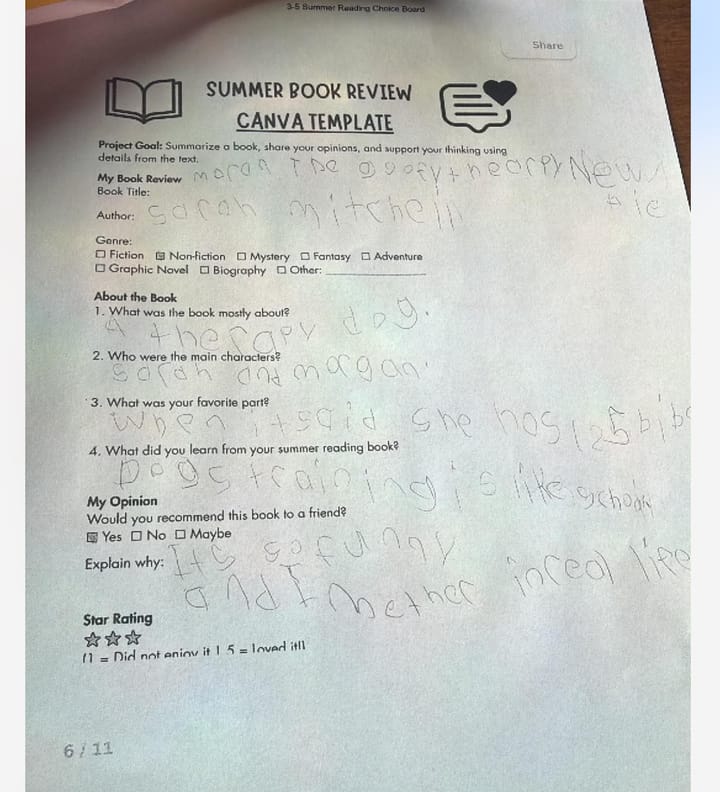 3-5 Summer Reading Choice Board
Share
SUMMER BOOK REVIEW
CANVA TEMPLATE
Project Goal: Summarize a book, share your opinions, and support your thinking using
details from the text.
My Book Review
Book Title: The goofy New
Author: Sarah mitchell
Genre:
☐ Fiction ☒ Non-fiction ☐ Mystery ☐ Fantasy ☐ Adventure
☐ Graphic Novel ☐ Biography ☐ Other:
About the Book
1. What was the book mostly about?
A therapy dog.
2. Who were the main characters?
Sarah and morgan.
3. What was your favorite part?
When it said she has 125 bibs
4. What did you learn from your summer reading book?
Dogs training is like school
My Opinion
Would you recommend this book to a friend?
☒ Yes ☐ No ☐ Maybe
Explain why: Its so funny
and I met her in real life
Star Rating
(1 = Did not enjoy it | 5 = loved it!)
6 / 11